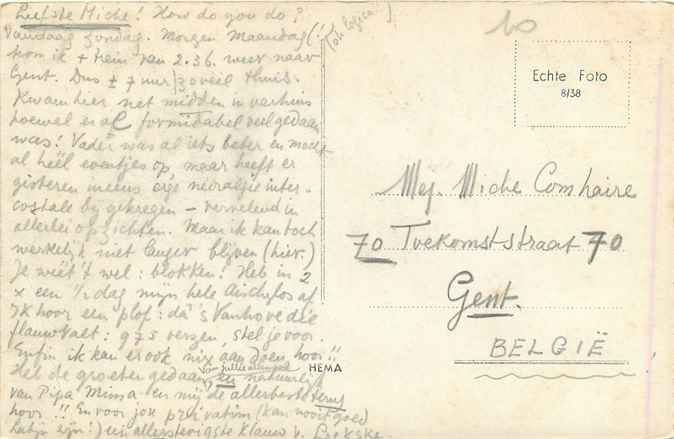 Liefste Miche! How do you do?
Vandaag Zondag. Morgen Maandag (!
kom ik + trein van 2.36. weer naar
Gent. Dus ± 7 uur zoveel thuis.
Kwam hier net midden in
hoewel er al formidabel veel gedaan
was! Vader was al iets beter en mocht
al héél eventjes op, maar heeft er
gisteren ineens erge neuralgie inter-
costale bij gekregen – vervelend in
allerlei opzichten. Maar ik kan toch
werkelijk niet langer blijven (hier.)
Je weet 't wel: blokken! Heb in 2
x een ½ dag mijn hele Aischylos af
Ik hoor een plof: da's Vanhove die
flauwvalt: 975 verzen, stel je voor.
Enfin ik kan er ook nix aan doen hoor!!
Heb de groeten gedaan, van jullie allemaal en natuurlijk
van Pipa Mima en mij de allerbeste terug
hoor!! En voor jou privatim (kan nooit goed
Latijn zijn!) een allerstevigste klauw v.
10
Echte Foto
8/38
Mej. Miche Comhaire
70 Toekomststraat 70
Gent.
BELGIË
HEMA